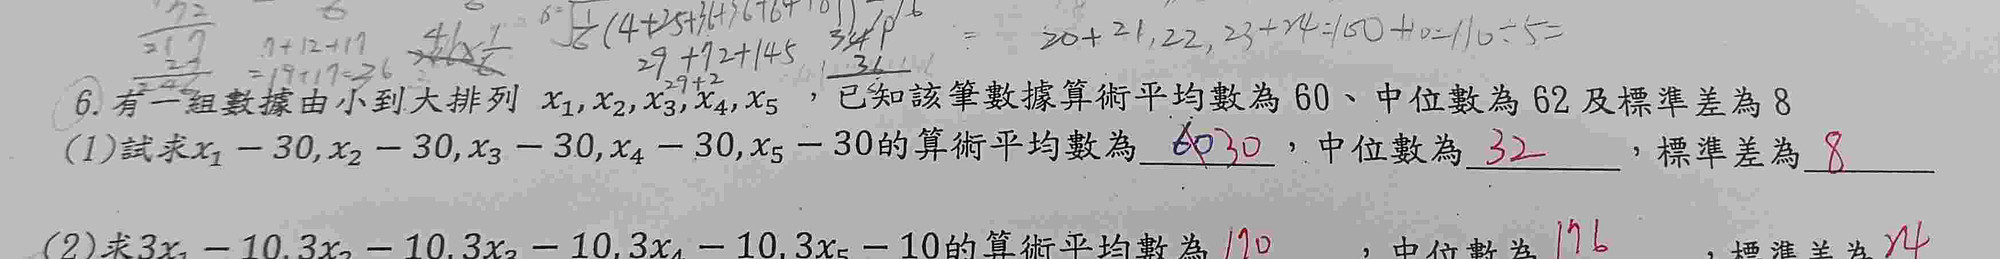 20+21,22,23+24=100+10=110÷5=
7+12+17
29+72+145
=19+17=36
29+2
6.有一組數據由小到大排列 x₁,x₂,x₃,x₄,x₅ ,已知該筆數據算術平均數為 60、中位數為 62 及標準差為 8
(1)試求x₁ − 30,x₂ − 30,x₃ − 30,x₄ − 30,x₅ − 30的算術平均數為 30 ,中位數為 32 ,標準差為 8
(2)求3x₁ − 10,3x₂ − 10,3x₃ − 10,3x₄ − 10,3x₅ − 10的算術平均數為 170 ,中位數為 176 ,標準差為 24